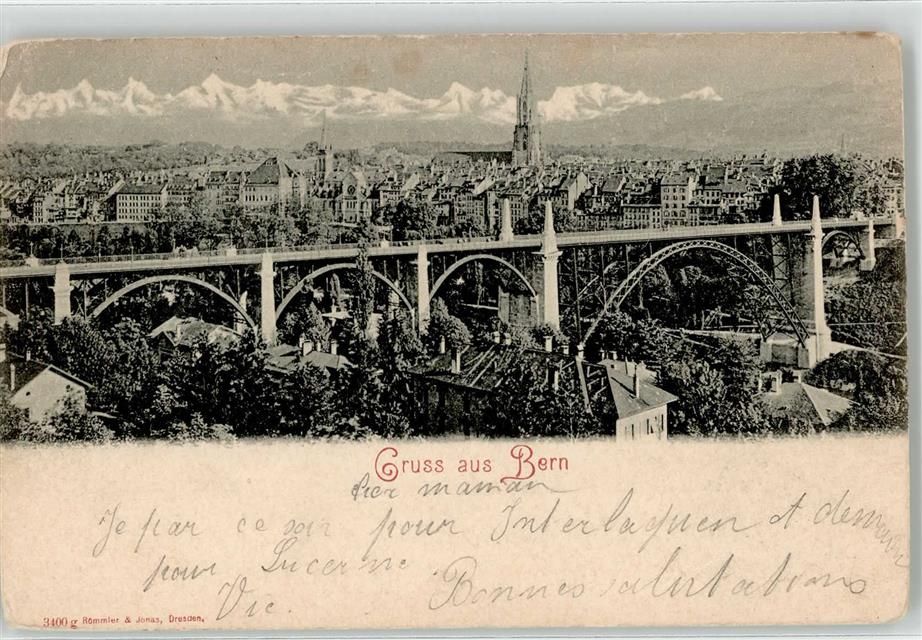 Gruss aus Bern
maman
Je par ce soir pour Interlaquen et demain
pour Lucerne.
Bonnes salutations
Vic.
3400 g Römmler & Jonas, Dresden.